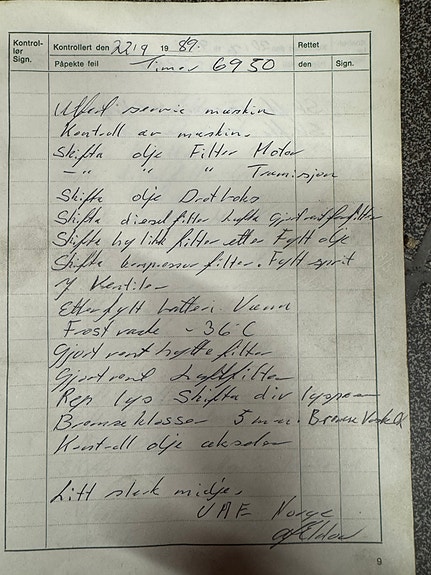 Kontrol-
lør
Sign.
Kontrollert den 22/9 1989.
Rettet
Påpekte feil Timer 6950
den
Sign.
Utført service maskin
Kontroll av maskin.
Skifta olje Filter Motor
— " — " " Tramisjon
Skifta olje Dretboks
Skifta dieselfilter Gjort rent forfilter
Skifta hylikk filter etter Fylt olje
Skifta kompressor filter. Fylt sprit
7 Ventiler
Etterfylt batteri Vann
Frost væske -36°C
Gjort rent hytte filter
Gjort rent Luftfilter
Rep lys Skifta div lyspærer
Bremseklosser 5 mm. Bremse Veske OK
Kontroll olje akselen
Litt slark midje.
Norge
9